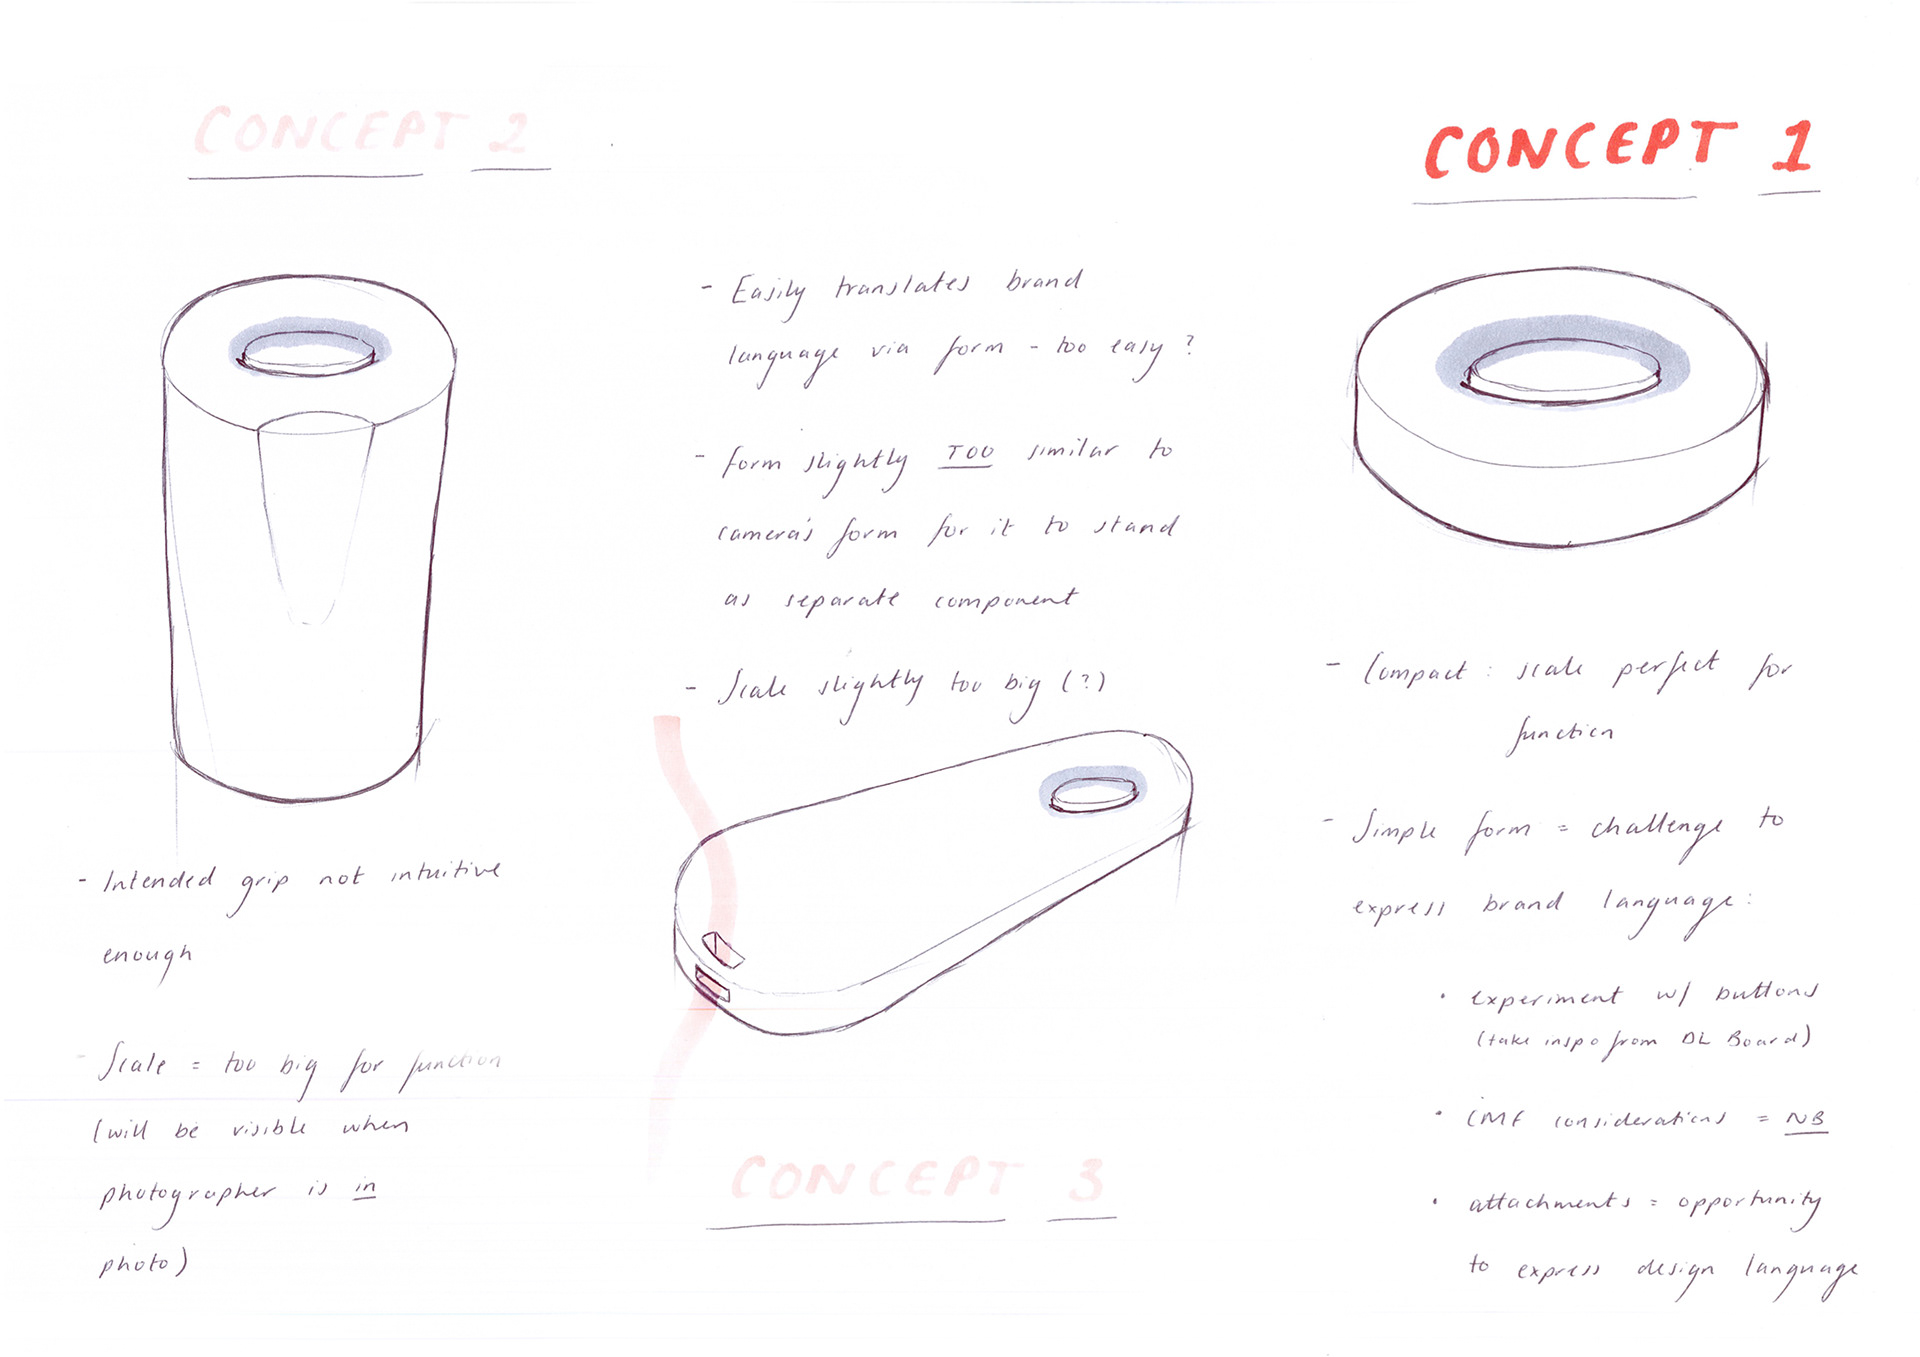 CONCEPT 2
- Intended grip not intuitive
enough
- Scale = too big for function
(will be visible when
photographer is in
photo)
- Easily translates brand
language via form - too easy?
- form slightly TOO similar to
camera's form for it to stand
as separate component
- Scale slightly too big (?)
CONCEPT 3
CONCEPT 1
- Compact : scale perfect for
function
- Simple form = challenge to
express brand language:
• experiment w/ buttons
(take inspo from DL Board)
• CMF considerations = NB
• attachments = opportunity
to express design language